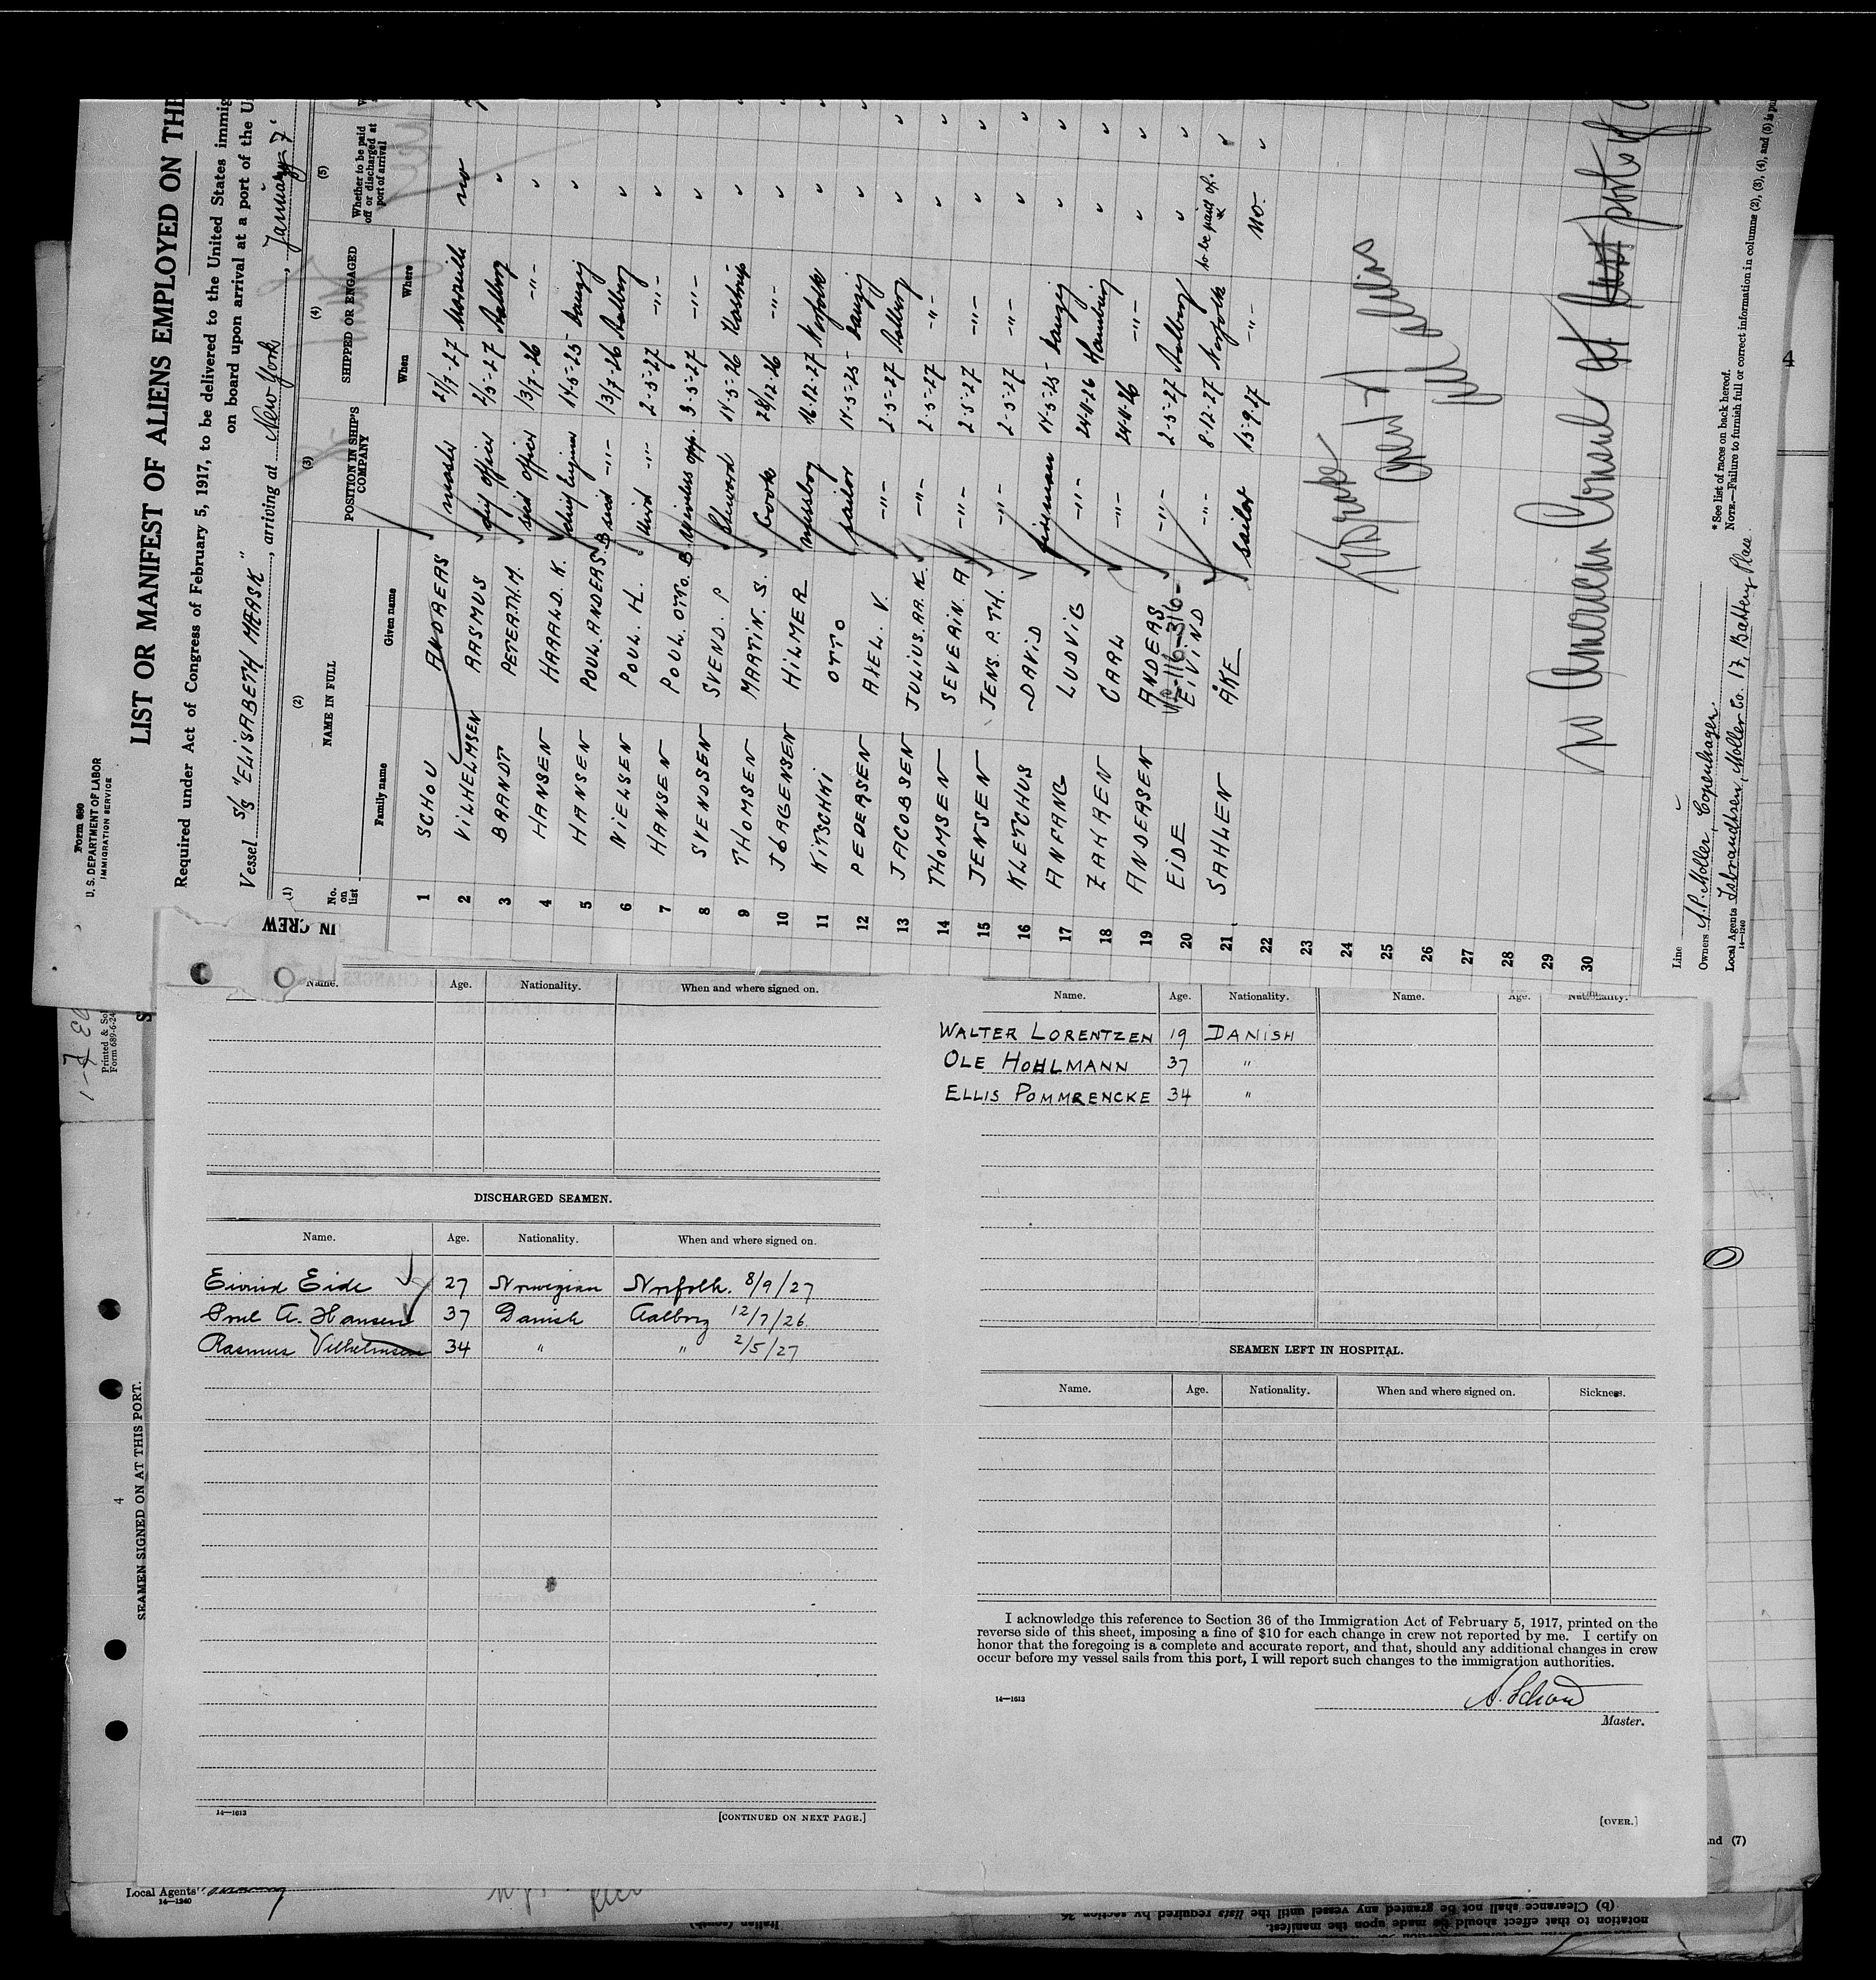 Form 680
U. S. DEPARTMENT OF LABOR
IMMIGRATION SERVICE
LIST OR MANIFEST OF ALIENS EMPLOYED ON THE
Required under Act of Congress of February 5, 1917, to be delivered to the United States immig
on board upon arrival at a port of the U
Vessel S/S "ELISABETH MÆRSK", arriving at New-York, January 7'
(1) (2) (3) (4) (5)
No. on list
NAME IN FULL
Family name Given name
POSITION IN SHIP'S COMPANY
SHIPPED OR ENGAGED
When Where
Whether to be paid off or discharged at port of arrival
1 SCHOU ANDREAS master 21/7-27 Marseille no
2 VILHELMSEN RASMUS officer 2/5-27 Aalborg
3 BRANDT PETER.TH.M. officer 13/7-26 -"-
4 HANSEN HARALD. K. 14-5-25 Danzig
5 HANSEN POUL.ANDERS. B 13/7-26 Aalborg
6 NIELSEN POUL. H. third -"- 2-5-27 -"-
7 HANSEN POUL. OTTO. B Wireless opp. 3-5-27 -"-
8 SVENDSEN SVEND. P Steward 14-5-26 Kastrup
9 THOMSEN MARTIN. S. Cook 28/12-26 -"-
10 JØRGENSEN HILMER messboy 16-12-27 Norfolk
11 KITSCHKI OTTO sailor 14-5-25 Danzig
12 PEDERSEN AXEL. V. -"- 2-5-27 Aalborg
13 JACOBSEN JULIUS. AA. K. -"- 2-5-27 -"-
14 THOMSEN SEVERIN. A -"- 2-5-27 -"-
15 JENSEN JENS. P. TH. -"- 2-5-27 -"-
16 KLETCHUS DAVID fireman 14-5-25 Danzig
17 ANFANG LUDVIG -"- 24-11-26 Hamburg
18 ZAHREN CARL -"- 24-11-26 -"-
19 ANDERSEN ANDERS -"- 2-5-27 Aalborg
20 EIDE EIVIND -"- 8-12-27 Norfolk to be paid of.
21 SAHLEN ÅKE sailor 15-9-27 -"- no.
22
23
24
25
26
27
28
29
30
No American Consul at port of
Line
Owners A.P. Møller, Copenhagen.
Local Agents Isbrandtsen, Moller Co. 17, Battery Place
14—1240
* See list of races on back hereof.
NOTE.—Failure to furnish full or correct information in columns (2), (3), (4), and (5) is pu
IN CREW
Printed & Sol
Form 689-6-24
Name. Age. Nationality. When and where signed on.
DISCHARGED SEAMEN.
Name. Age. Nationality. When and where signed on.
Eivind Eide 27 Norwegian Norfolk. 8/9/27
Poul A. Hansen 37 Danish Aalborg 12/7/26
Rasmus Vilhelmsen 34 " " 2/5/27
14—1613
[CONTINUED ON NEXT PAGE.]
Name. Age. Nationality. Name. Age. Nationality.
WALTER LORENTZEN 19 DANISH
OLE HOHLMANN 37 "
ELLIS POMMRENCKE 34 "
SEAMEN LEFT IN HOSPITAL.
Name. Age. Nationality. When and where signed on. Sickness.
I acknowledge this reference to Section 36 of the Immigration Act of February 5, 1917, printed on the
reverse side of this sheet, imposing a fine of $10 for each change in crew not reported by me. I certify on
honor that the foregoing is a complete and accurate report, and that, should any additional changes in crew
occur before my vessel sails from this port, I will report such changes to the immigration authorities.
14—1613
A. Schou
Master.
[OVER.]
SEAMEN SIGNED ON AT THIS PORT.
4
4
nd (7)
Local Agents
14—1240
Italian (south)
(b) Clearance shall not be granted any vessel until the lists required by section 36
notation to that effect should be made upon the manifest.